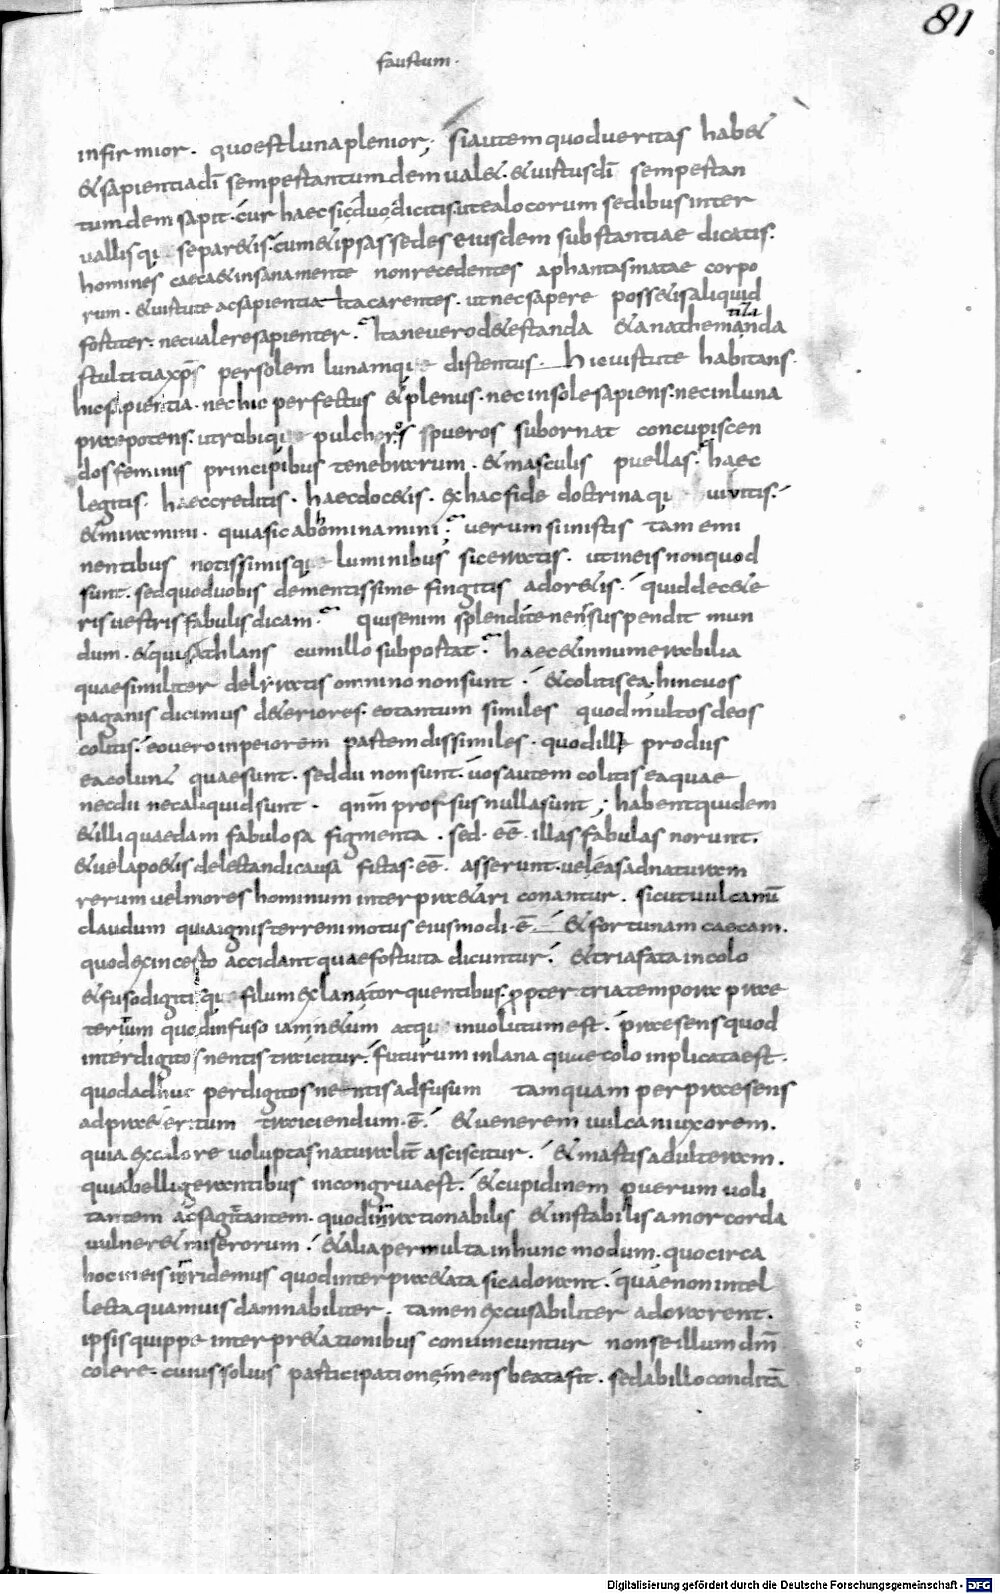 81
faustum.
infirmior. quo est luna plenior; si autem quod ueritas hab&
& sapientia dī semper tantumdem ual&. & uirtus dī semper tan
tumdem sapit. cur haec sic duo dicitis. ut ea locorum sedibus inter
uallisque separ&is. cum & ipsas sedes eiusdem substantiae dicatis.
homines caeca & insana mente non recedentes a phantasmatae corpo
rum. & uirtute ac sapientia ita carentes. ut nec sapere poss&is aliquid
fortiter. nec ualere sapienter. Itane uero d&estanda & anathemanda
stultitia xp̄s per solem lunamque distentus. hic uirtute habitans.
hic sapientia. nec hic perfectus & plenus. nec in sole sapiens. nec in luna
praepotens. utrobique pulchros pueros subornat concupiscen
dos feminis principibus tenebrarum. & masculis puellas. haec
legitis. haec creditis. haec doc&is. ex hac fide doctrinaque uiuitis.
& miramini. quia sic abhominamini. uerum si in istis tam emi
nentibus notissimisque luminibus sic erratis. ut in eis non quod
sunt. sed quod uobis dementissime fingitis ador&is. quid de c&e
ris uestris fabulis dicam. quis enim splenditenens suspendit mun
dum. & quis athlans cum illo subportat. haec & innumerabilia
quae similiter deliratis omnino non sunt. & colitis ea. hinc uos
paganis dicimus d&eriores. eo tantum similes quod multos deos
colitis. eo uero in peiorem partem dissimiles. quod illi pro diis
ea colun& quae sunt. sed dii non sunt. uos autem colitis ea quae
nec dii nec aliquid sunt. qnm̄ prorsus nulla sunt; habent quidem
& illi quaedam fabulosa figmenta. sed. eē. illas fabulas norunt.
& uel a po&is delectandi causa fictas. eē. asserunt. uel eas ad naturam
rerum uel mores hominum interpr&ari conantur. sicut uulcanū
claudum quia ignis terreni motus eiusmodi. ē. & fortunam caecam.
quod ex incerto accidant quae fortuita dicuntur. & tria fata in colo
& fuso digitisque filum ex lana torquentibus. propter tria tempora prae
teritum quod in fuso iam n&um atque inuolutum est. praesens quod
inter digitos nentis traicitur. futurum in lana quae colo inplicata est.
quod adhuc per digitos nentis ad fusum tamquam per praesens
ad praeteritum traiciendum. ē. & uenerem uulcani uxorem.
quia ex calore uoluptas naturalit̄ asciscitur. & martis adulteram.
quia belligerantibus incongrua est. & cupidinem puerum uoli
tantem ac sagittantem. quod inrationabilis & instabilis amor corda
uulner& miserorum. & alia permulta in hunc modum. quocirca
hoc in eis inridemus quod interpr&ata sic adorant. quae non intel
lecta quamuis damnabiliter. tamen excusabiliter adorarent.
ipsis quippe interpr&ationibus conuincuntur non se illum dm̄
colere. cuius solius participatione mens beata fit. sed ab illo conditā
Digitalisierung gefördert durch die Deutsche Forschungsgemeinschaft - DFG